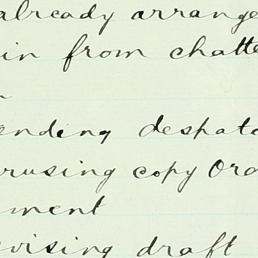 already arrange
in from chatte
ending despatc
rusing copy Ord
ment
vising draft